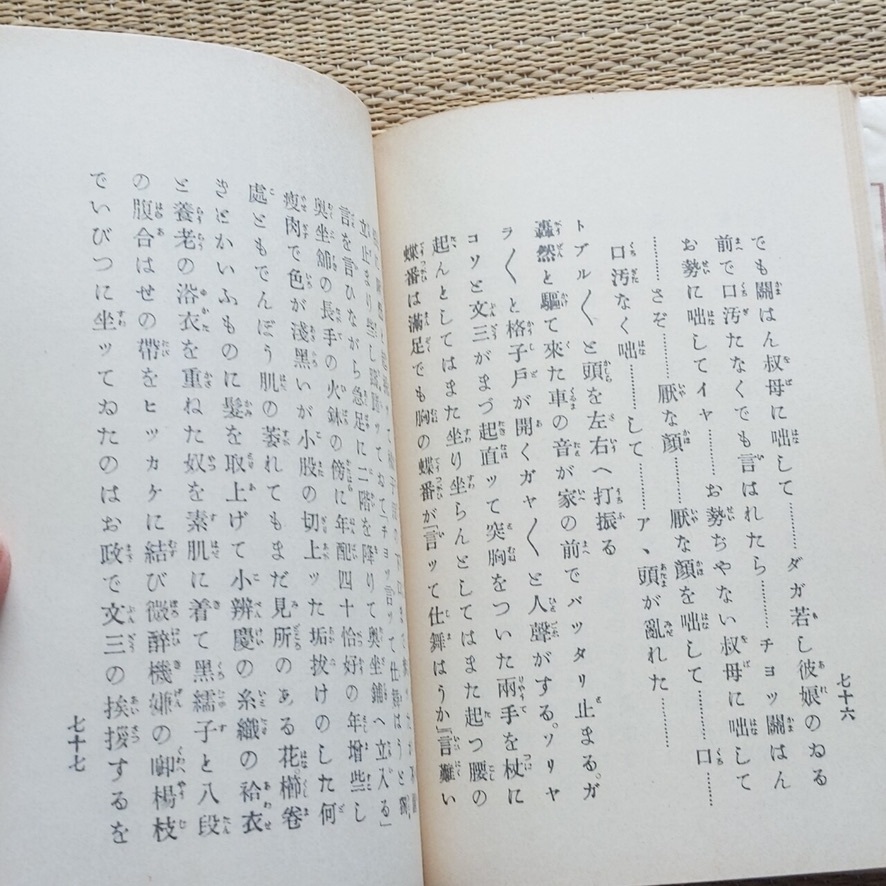 七十六
でも關はん叔母に咄して………ダガ若し彼娘のゐる
前で口汚たなくでも言はれたら………チヨッ關はん
お勢に咄してイヤ………お勢ちやない叔母に咄して
………さぞ………厭な顔………厭な顔を咄して………口
口汚なく咄………して………ア、頭が亂れた………
トブル〱と頭を左右へ打振る
轟然と驅て來た車の音が家の前でバッタリ止まる。ガ
ラ〱と格子戸が開くガヤ〱と人聲がする。ソリヤ
コソと文三がまづ起直ッて突胸をついた兩手を杖に
起んとしてはまた坐り坐らんとしてはまた起つ腰の
蝶番は滿足でも胸の蝶番が『言ッて仕舞はうか『言難い
立止まり些し躊躇ッてゐて『チヨッ言ッて仕舞はうと獨
言を言ひながら急足に二階を降りて奥坐鋪へ立入る」
奥坐鋪の長手の火鉢の傍に年配四十恰好の年增些し
瘦肉で色が淺黑いが小股の切上ッた垢拔けのした何
處ともでんぼう肌の萎れてもまだ見所のある花。櫛卷
きとかいふものに髮を取上げて小辨慶の糸織の袷衣
と養老の浴衣を重ねた奴を素肌に着て黑繻子と八段
の腹合はせの帶をヒッカケに結び微醉機嫌の啣楊枝
でいびつに坐ッてゐたのはお政で文三の挨拶するを
七十七